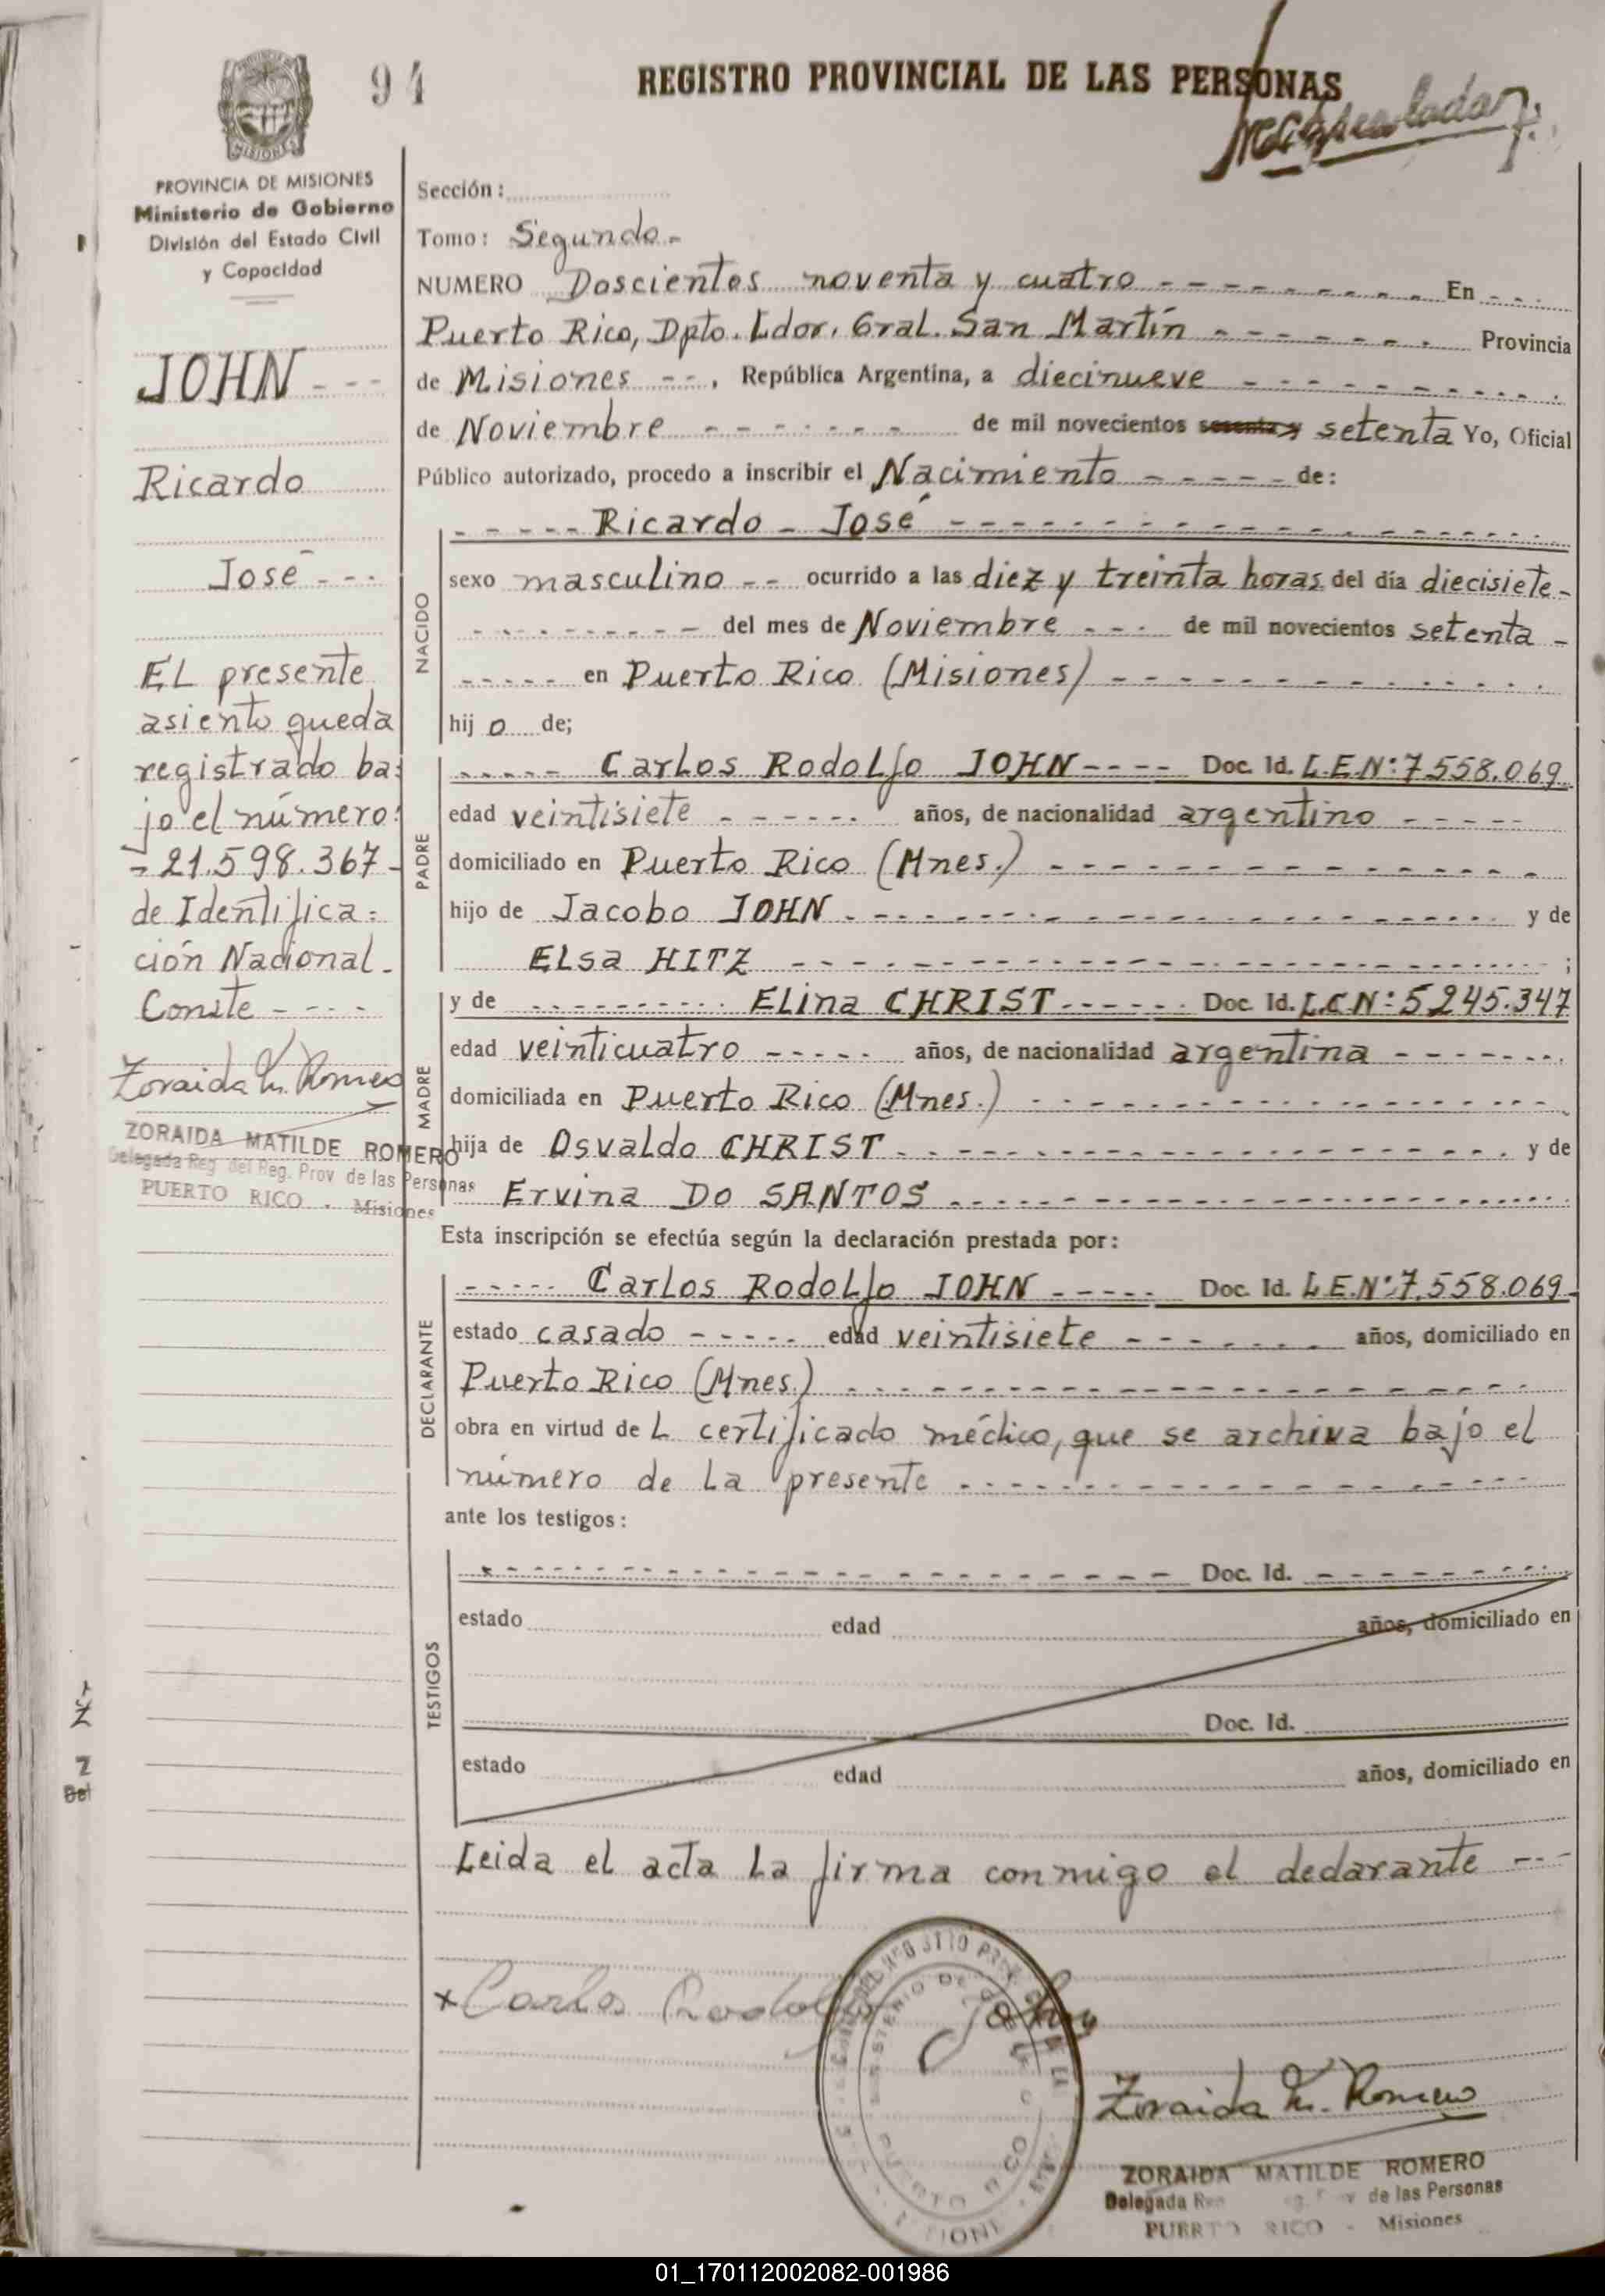 94
REGISTRO PROVINCIAL DE LAS PERSONAS
MISIONES
PROVINCIA DE MISIONES
Ministerio de Gobierno
División del Estado Civil
y Capacidad
JOHN - - -
Ricardo
José - - -
EL presente
asiento queda
registrado ba=
jo el número:
= 21.598.367 -
de Identifica=
ción Nacional.
Conste - - - -
Zoraida M. Romero
ZORAIDA MATILDE ROMERO
Delegada Reg. del Reg. Prov de las Personas
PUERTO RICO - Misiones
Sección:
Tomo: Segundo -
NUMERO Doscientos noventa y cuatro - - - - - - - - - En - - -
Puerto Rico, Dpto. Ldor. Gral. San Martín - - - - - - - Provincia
de Misiones - - , República Argentina, a diecinueve - - - - - - - - -
de Noviembre - - - - - - - de mil novecientos sesenta y setenta Yo, Oficial
Público autorizado, procedo a inscribir el Nacimiento - - - - - de:
- - - - - Ricardo - José - - - - - - - - - - - - - - -
NACIDO
sexo masculino - - ocurrido a las diez y treinta horas del día diecisiete -
- - - - - - - - - del mes de Noviembre - - - de mil novecientos setenta -
- - - - - en Puerto Rico (Misiones) - - - - - - - - - - - -
hij o de;
PADRE
- - - - - Carlos Rodolfo JOHN - - - - Doc. Id. L.E.Nº: 7.558.069
edad veintisiete - - - - - - años, de nacionalidad argentino - - - - -
domiciliado en Puerto Rico (Mnes.) - - - - - - - - - - - - - -
hijo de Jacobo JOHN - - - - - - - - - - - - - - - y de
ELsa HITZ - - - - - - - - - - - - - - - - - - ;
MADRE
y de - - - - - - - - - - ELina CHRIST - - - - - - Doc. Id. L.C.Nº: 5.245.347
edad veinticuatro - - - - - años, de nacionalidad argentina - - - - - - -
domiciliada en Puerto Rico (Mnes.) - - - - - - - - - - - - - - -
hija de Osvaldo CHRIST - - - - - - - - - - - - - - - y de
Ervina DO SANTOS - - - - - - - - - - - - - - - - - -
Esta inscripción se efectúa según la declaración prestada por:
DECLARANTE
- - - - - Carlos Rodolfo JOHN - - - - - Doc. Id. L.E.Nº: 7.558.069 -
estado casado - - - - - edad veintisiete - - - - - - años, domiciliado en
Puerto Rico (Mnes.) - - - - - - - - - - - - - - - - - -
obra en virtud de L certificado médico, que se archiva bajo el
número de La presente - - - - - - - - - - - - - - -
ante los testigos:
TESTIGOS
- - - - - - - - - - - - - - - - - - - Doc. Id. - - - - - - - -
estado edad años, domiciliado en
Doc. Id.
estado edad años, domiciliado en
Leida el acta La firma conmigo el declarante - - -
x Carlos Rodolfo John
Zoraida M. Romero
ZORAIDA MATILDE ROMERO
Delegada de las Personas
PUERTO RICO - Misiones
01_170112002082-001986